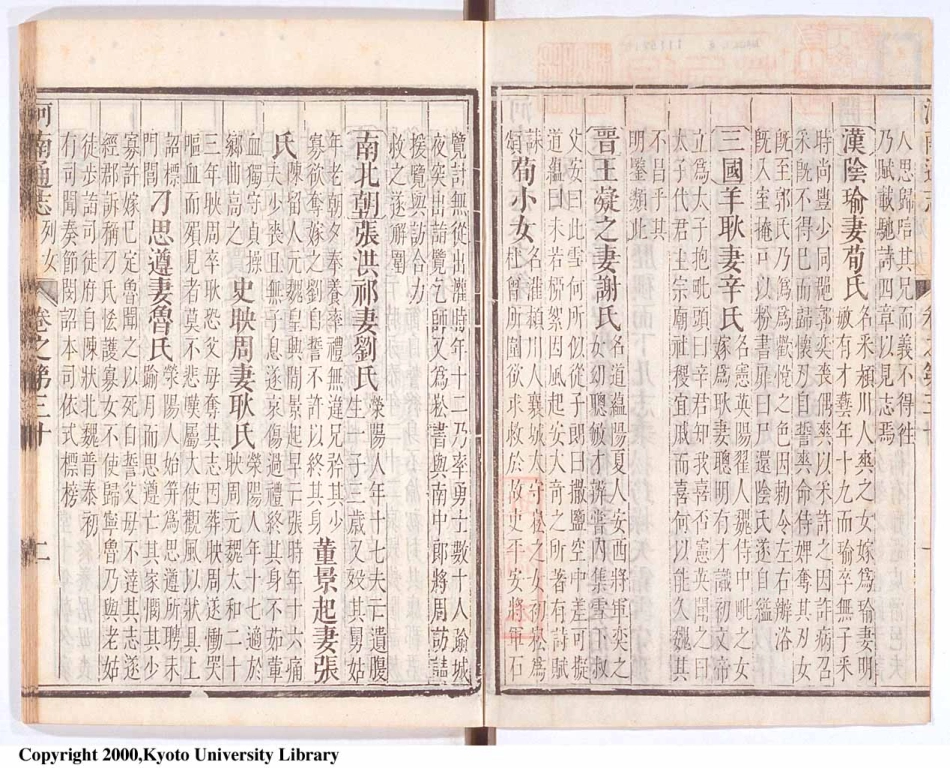 人思歸唁其兄而義不得往
乃賦載馳詩四章以見志焉
漢陰瑜妻荀氏 名采潁川人爽之女嫁為瑜妻明
敏有才藝年十九而瑜卒無子采
時尚豐少同郡郭奕喪偶爽以采許之因詐病召
采既不得已而歸懷刃自誓爽命侍婢奪其刃女
既至郭氏乃為歡悅之色因勑令左右辦浴
既入室掩戶以粉書扉曰尸還陰氏遂自縊
三國羊耽妻辛氏 名憲英陽翟人魏侍中毗之女
嫁為耽妻聰明有才識初文帝
立為太子抱毗頭曰辛君知我喜否憲英聞之曰
太子代君主宗廟社稷宜戚而喜何以能久魏其
不昌乎其
明鑒類此
晉王凝之妻謝氏 名道蘊陽夏人安西將軍奕之
女幼聰敏有才辨嘗內集雪下叔
父安曰此雪何所似從子朗曰撒鹽空中差可擬
道蘊曰未若柳絮因風起安大奇之所著有詩賦
誄
頌 荀小女 名灌潁川人襄城太守崧之女初崧為
杜曾所圍欲求救於故吏平安將軍石
覽計無從出灌時年十二乃率勇士數十人踰城
夜突出詣覽乞師又為崧書與南中郎將周訪請
援覽與訪合力
救之遂解圍
南北朝張洪祁妻劉氏 滎陽人年十七夫亡遺腹
生一子三歲又殁其舅姑
年老朝夕奉養率禮無違兄矜其少
寡欲奪嫁之劉自誓不許以終其身 董景起妻張
氏 陳留人元魏皇興間景起早亡張時年十六痛
夫少喪且無子息遂哀傷過禮終其身不茹葷
血獨守貞操
鄉曲高之 史映周妻耿氏 滎陽人年十七適於
映周元魏太和二十
三年映周卒耿恐父母奪其志因葬映周遂慟哭
嘔血而殞見者莫不悲嘆屬大使觀風以狀具上
詔標
門閭 刁思遵妻魯氏 滎陽人始笄為思遵所聘未
踰月而思遵亡其家憫其少
寡許嫁已定魯聞之以死自誓父母不達其志遂
經郡訴稱刁氏恡護寡女不使歸寧魯乃與老姑
徒步詣司徒府自陳狀北魏普泰初
有司聞奏節閔詔本司依式標榜
河南通志 列女 卷之第三十 二
Copyright 2000,Kyoto University Library